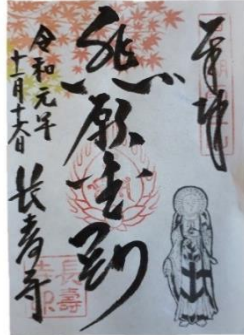 奉拝
悲願金剛
令和元年
十一月十六日
長寿寺
長壽